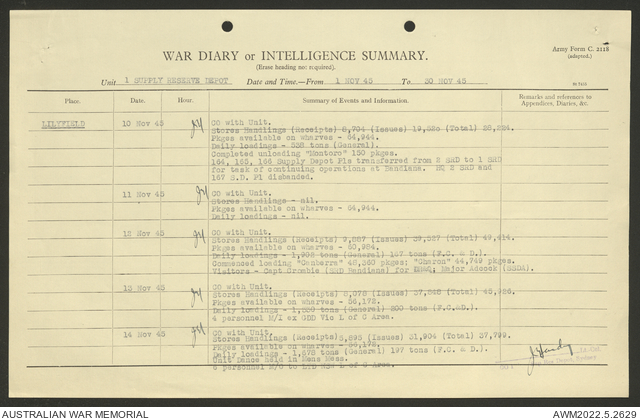 Army Form C. 2118
(adapted.)
WAR DIARY or INTELLIGENCE SUMMARY.
(Erase heading not required).
Unit 1 SUPPLY RESERVE DEPOT Date and Time.—From 1 NOV 45 To 30 NOV 45
Place. Date. Hour. Summary of Events and Information. Remarks and references to Appendices, Diaries, &c.
LILYFIELD 10 Nov 45 CO with Unit.
Stores Handlings (Receipts) (Issues) (Total)
Pkges available on wharves - 64,944.
Daily loadings - 938 tons (General).
Completed unloading "Montoro" 150 pkges.
164, 165, 166 Supply Depot Pls transferred from 2 SRD to 1 SRD
for task of continuing operations at Bandiana. HQ 2 SRD and
167 S.D. Pl disbanded.
11 Nov 45 CO with Unit.
Stores Handlings - nil.
Pkges available on wharves - 64,944.
Daily loadings - nil.
12 Nov 45 CO with Unit.
Stores Handlings (Receipts) 9,887 (Issues) 39,527 (Total) 49,414.
Pkges available on wharves -
Daily loadings - tons (General) 187 tons (F.C. & D.).
Commenced loading "Canberra" 48,260 pkges; "Charon" 44,749 pkges.
Visitors - Capt Crombie (SRD Bandiana) for Major Adcock (SSDA).
13 Nov 45 CO with Unit.
Stores Handlings (Receipts) (Issues) (Total)
Pkges available on wharves - 56,172.
Daily loadings - tons (General) tons (F.C.&D.).
4 personnel M/I ex GDD Vic L of C Area.
14 Nov 45 CO with Unit.
Stores Handlings (Receipts) 5,895 (Issues) 31,904 (Total) 37,799.
Pkges available on wharves - 56,172.
Daily loadings - 1,678 tons (General) 197 tons (F.C. & D.).
Unit Dance held in Mens Mess.
6 personnel M/O to L of C Area.
Lt-Col.
AUSTRALIAN WAR MEMORIAL AWM2022.5.2629